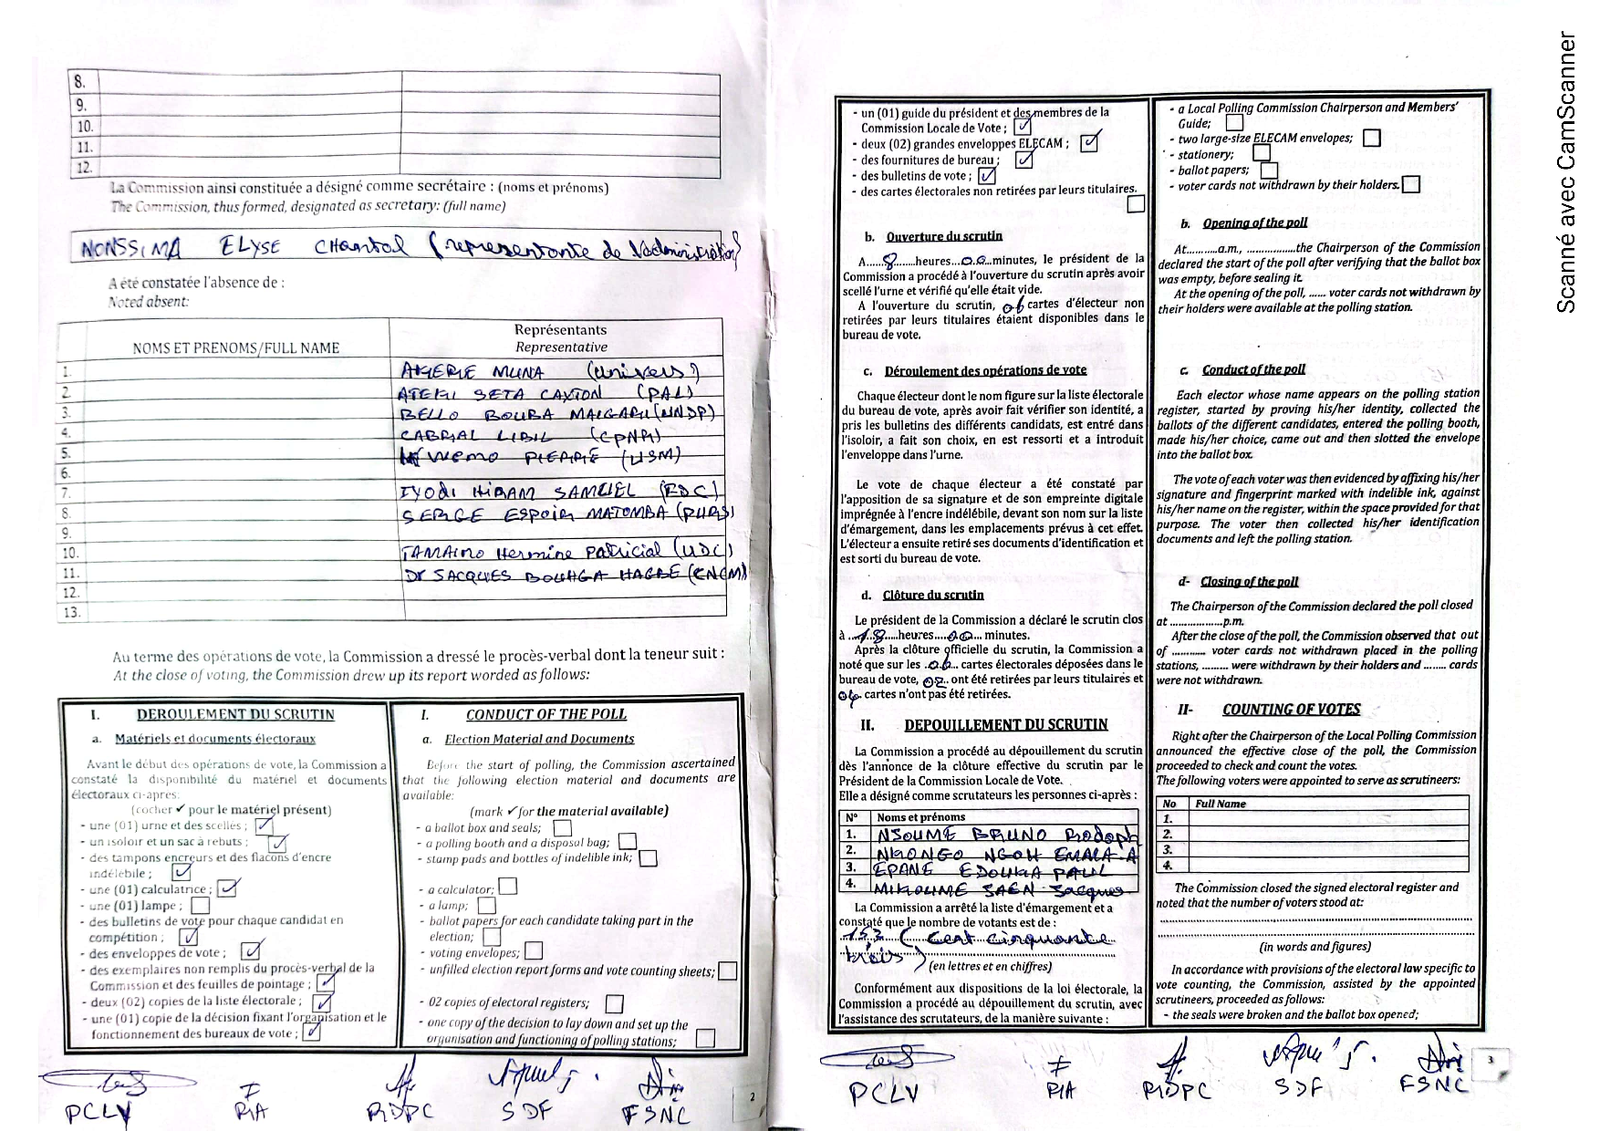 8.
9.
10.
11.
12.
La Commission ainsi constituée a désigné comme secrétaire : (noms et prénoms)
The Commission, thus formed, designated as secretary: (full name)
NONSSIMA ELYSE CHantal (representante de l'administration)
A été constatée l'absence de :
Noted absent:
NOMS ET PRENOMS/FULL NAME
Représentants
Representative
1. AKERE MUNA (Univers)
2. ATEKI SETA CAXTON (PAL)
3. BELLO BOUBA MAIGARI (UNDP)
4. CABRAL LIBII (CPNR)
5. KWEMO PIERRE (USM)
6.
7. IYODI HIRAM SAMUEL (FDC)
8. SERGE ESPOIR MATOMBA (PURS)
9.
10. TAMAINO Hermine PATRICIAL (UDC)
11. Dr JACQUES BOUHGA HAGBE (CNCM)
12.
13.
Au terme des opérations de vote, la Commission a dressé le procès-verbal dont la teneur suit :
At the close of voting, the Commission drew up its report worded as follows:
I. DEROULEMENT DU SCRUTIN
a. Matériels et documents électoraux
Avant le début des opérations de vote, la Commission a
constaté la disponibilité du matériel et documents
électoraux ci-après:
(cocher ✓ pour le matériel présent)
- une (01) urne et des scellés ; ☑
- un isoloir et un sac à rebuts ; ☑
- des tampons encreurs et des flacons d'encre
indélébile ; ☑
- une (01) calculatrice ; ☑
- une (01) lampe ; ☐
- des bulletins de vote pour chaque candidat en
compétition ; ☑
- des enveloppes de vote ; ☑
- des exemplaires non remplis du procès-verbal de la
Commission et des feuilles de pointage ; ☑
- deux (02) copies de la liste électorale ; ☑
- une (01) copie de la décision fixant l'organisation et le
fonctionnement des bureaux de vote ; ☑
I. CONDUCT OF THE POLL
a. Election Material and Documents
Before the start of polling, the Commission ascertained
that the following election material and documents are
available:
(mark ✓ for the material available)
- a ballot box and seals; ☐
- a polling booth and a disposal bag; ☐
- stamp pads and bottles of indelible ink; ☐
- a calculator; ☐
- a lamp; ☐
- ballot papers for each candidate taking part in the
election; ☐
- voting envelopes; ☐
- unfilled election report forms and vote counting sheets; ☐
- 02 copies of electoral registers; ☐
- one copy of the decision to lay down and set up the
organisation and functioning of polling stations; ☐
PCLV RIA RDPC SDF FSNC
2
- un (01) guide du président et des membres de la
Commission Locale de Vote ; ☑
- deux (02) grandes enveloppes ELECAM ; ☑
- des fournitures de bureau ; ☑
- des bulletins de vote ; ☑
- des cartes électorales non retirées par leurs titulaires. ☐
b. Ouverture du scrutin
A......8......heures...00...minutes, le président de la
Commission a procédé à l'ouverture du scrutin après avoir
scellé l'urne et vérifié qu'elle était vide.
A l'ouverture du scrutin, 06 cartes d'électeur non
retirées par leurs titulaires étaient disponibles dans le
bureau de vote.
c. Déroulement des opérations de vote
Chaque électeur dont le nom figure sur la liste électorale
du bureau de vote, après avoir fait vérifier son identité, a
pris les bulletins des différents candidats, est entré dans
l'isoloir, a fait son choix, en est ressorti et a introduit
l'enveloppe dans l'urne.
Le vote de chaque électeur a été constaté par
l'apposition de sa signature et de son empreinte digitale
imprégnée à l'encre indélébile, devant son nom sur la liste
d'émargement, dans les emplacements prévus à cet effet.
L'électeur a ensuite retiré ses documents d'identification et
est sorti du bureau de vote.
d. Clôture du scrutin
Le président de la Commission a déclaré le scrutin clos
à ...18...heures....00.... minutes.
Après la clôture officielle du scrutin, la Commission a
noté que sur les ..06... cartes électorales déposées dans le
bureau de vote, 02.. ont été retirées par leurs titulaires et
04 cartes n'ont pas été retirées.
II. DEPOUILLEMENT DU SCRUTIN
La Commission a procédé au dépouillement du scrutin
dès l'annonce de la clôture effective du scrutin par le
Président de la Commission Locale de Vote.
Elle a désigné comme scrutateurs les personnes ci-après :
N° Noms et prénoms
1. NSOUME BRUNO Rodolph
2. NKONGO NGOH EMALA A
3. EPANE EDOUKA PAUL
4. MIKOUME SAEN Jacques
La Commission a arrêté la liste d'émargement et a
constaté que le nombre de votants est de :
153 (Cent cinquante
trois)
(en lettres et en chiffres)
Conformément aux dispositions de la loi électorale, la
Commission a procédé au dépouillement du scrutin, avec
l'assistance des scrutateurs, de la manière suivante :
- a Local Polling Commission Chairperson and Members'
Guide; ☐
- two large-size ELECAM envelopes; ☐
- stationery; ☐
- ballot papers; ☐
- voter cards not withdrawn by their holders. ☐
b. Opening of the poll
At..........a.m., .................the Chairperson of the Commission
declared the start of the poll after verifying that the ballot box
was empty, before sealing it.
At the opening of the poll, ...... voter cards not withdrawn by
their holders were available at the polling station.
c. Conduct of the poll
Each elector whose name appears on the polling station
register, started by proving his/her identity, collected the
ballots of the different candidates, entered the polling booth,
made his/her choice, came out and then slotted the envelope
into the ballot box.
The vote of each voter was then evidenced by affixing his/her
signature and fingerprint marked with indelible ink, against
his/her name on the register, within the space provided for that
purpose. The voter then collected his/her identification
documents and left the polling station.
d- Closing of the poll
The Chairperson of the Commission declared the poll closed
at ..................p.m.
After the close of the poll, the Commission observed that out
of ............ voter cards not withdrawn placed in the polling
stations, ......... were withdrawn by their holders and ........ cards
were not withdrawn.
II- COUNTING OF VOTES
Right after the Chairperson of the Local Polling Commission
announced the effective close of the poll, the Commission
proceeded to check and count the votes.
The following voters were appointed to serve as scrutineers:
No Full Name
1.
2.
3.
4.
The Commission closed the signed electoral register and
noted that the number of voters stood at:
(in words and figures)
In accordance with provisions of the electoral law specific to
vote counting, the Commission, assisted by the appointed
scrutineers, proceeded as follows:
- the seals were broken and the ballot box opened;
PCLV RIA RDPC SDF FSNC
3
Scanné avec CamScanner